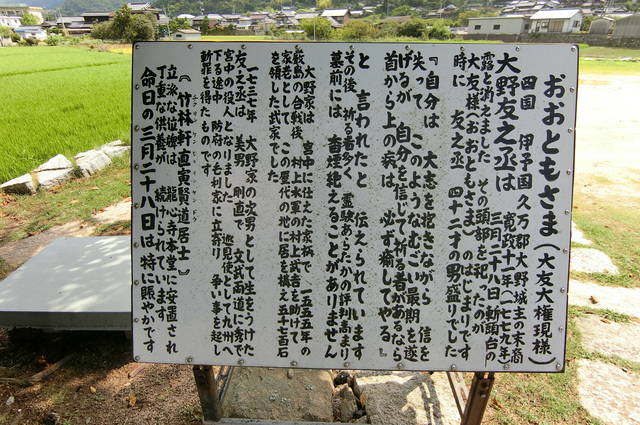 おおともさま（大友大権現様）
四国　伊予国久万郡大野城主の末裔
大野友之丞は　寛政十一年（一七七九年）
三月二十八日　斬頭台の
露と消えました　その頭部を祀ったのが
大友様（おおともさま）のはじまりです
時に　友之丞　四十二才の男盛りでした
『自分は　大志を抱きながら　信を
失って　このようなむごい最期を遂
げるが　自分を信じて祈る者があるなら
首から上の病は、必ず癒してやる。』
と　言われたと　伝えられています
その後　祈る者多く　霊験あらたかの評判高まり
墓前には　香煙絶えることがありません
大野家は　宮中に仕えた京家で　一五五五年の
厳島の合戦後　村上水軍の村上武吉を助けて
家老として　この屋代の地に居を構え五千百石
を領した武家でした
一七三七年　大野家の次男として生をうけた
友之丞は　美男　剛直で　文武両道に秀で
宮中の役人となりました　巡見使として九州へ
下る途中　防府の毛利家に立寄り　争い事を起し
斬罪を得たものです
（竹林軒直寛賢道居士）
立派な位牌は　龍心寺本堂に安置され
丁重な供養が　続けられています
命日の三月二十八日は特に賑やかです